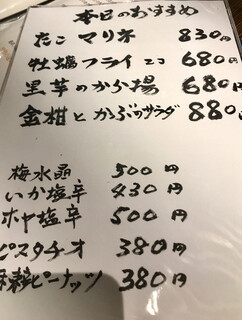 本日のおすすめ
たこマリネ 830円
牡蠣フライ 2コ 680円
黒芋のから揚 680円
金柑とかぶのサラダ 880円
梅水晶 500円
いか塩辛 430円
ホヤ塩辛 500円
ピスタチオ 380円
麻辣ピーナッツ 380円